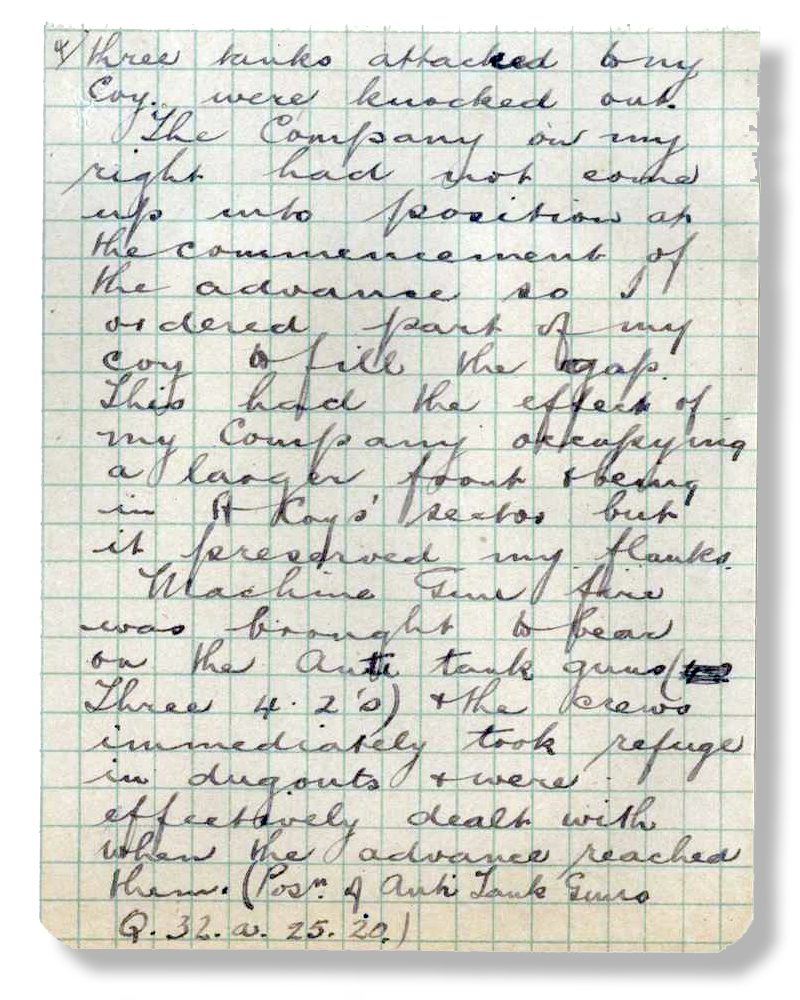 4/ three tanks attacked to my
Coy. were knocked out.
The Company on my
right had not come
up into position at
the commencement of
the advance so I
ordered part of my
coy to fill the gap
This had the effect of
my Company occupying
a larger front & being
in A Koys' sector but
it preserved my flanks.
Machine Gun fire
was brought to bear
on the Anti tank guns (
Three 4.2's) & the crews
immediately took refuge
in dugouts & were
effectively dealt with
when the advance reached
them. (Posn. of Anti Tank Guns
Q. 32. a. 25. 20.)